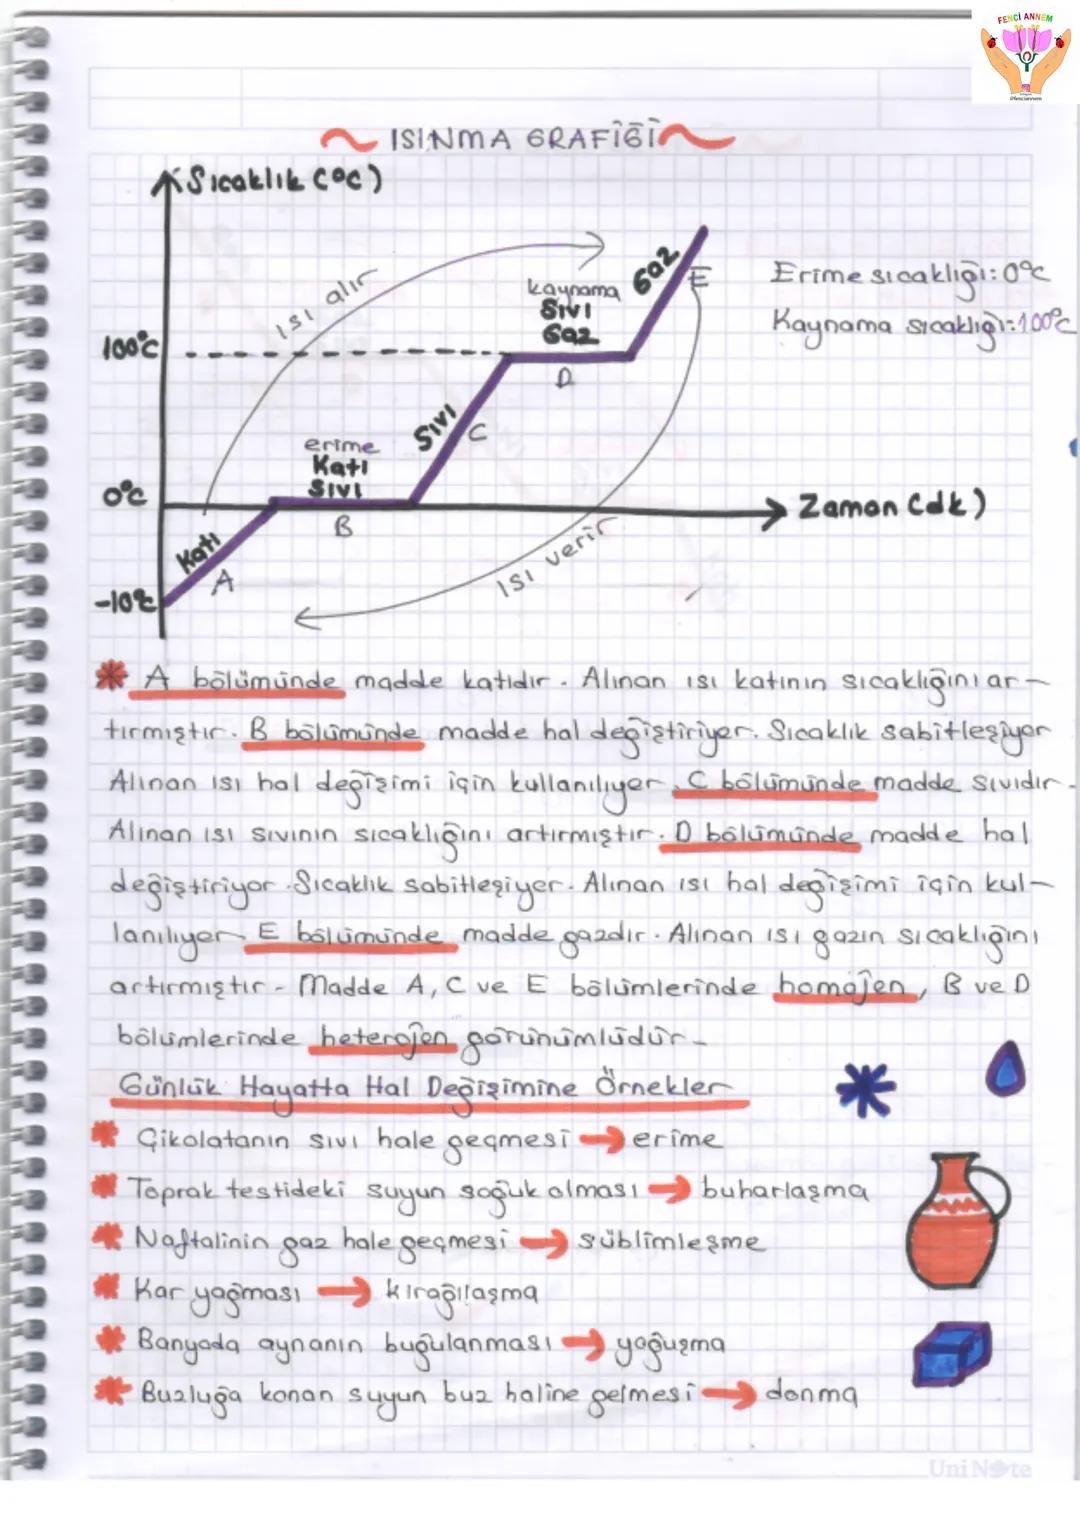 FENCİ ANNEM
@fenciannem
ISINMA GRAFİĞİ
Sıcaklık (°C)
Isı alır
kaynama
Sıvı
Gaz
Gaz
E
Erime sıcaklığı: 0°C
Kaynama sıcaklığı: 100°C
100°C
D
Sıvı
C
erime
Katı
Sıvı
0°C
B
Zaman (dk)
Katı
A
Isı verir
-10°C
* A bölümünde madde katıdır. Alınan ısı katının sıcaklığını ar-
tırmıştır. B bölümünde madde hal değiştiriyor. Sıcaklık sabitleşiyor
Alınan ısı hal değişimi için kullanılıyor. C bölümünde madde sıvıdır.
Alınan ısı sıvının sıcaklığını artırmıştır. D bölümünde madde hal
değiştiriyor. Sıcaklık sabitleşiyor. Alınan ısı hal değişimi için kul-
lanılıyor. E bölümünde madde gazdır. Alınan ısı gazın sıcaklığını
artırmıştır. Madde A, C ve E bölümlerinde homojen, B ve D
bölümlerinde heterojen görünümlüdür.
Günlük Hayatta Hal Değişimine Örnekler
* Çikolatanın sıvı hale geçmesi → erime
* Toprak testideki suyun soğuk olması → buharlaşma
* Naftalinin gaz hale geçmesi → süblimleşme
* Kar yağması → kırağılaşma
* Banyoda aynanın buğulanması → yoğuşma
* Buzluğa konan suyun buz haline gelmesi → donma
UniNote